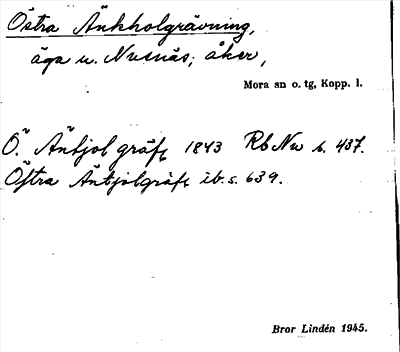 Östra Änkholgrävning,
äga u. Nusnäs; åker,
Mora sn o. tg, Kopp. l.
Ö. Äntjol gräf 1843 Rb Nu s. 437.
Östra Äntjolgräf ib. s. 639.
Bror Lindén 1945.